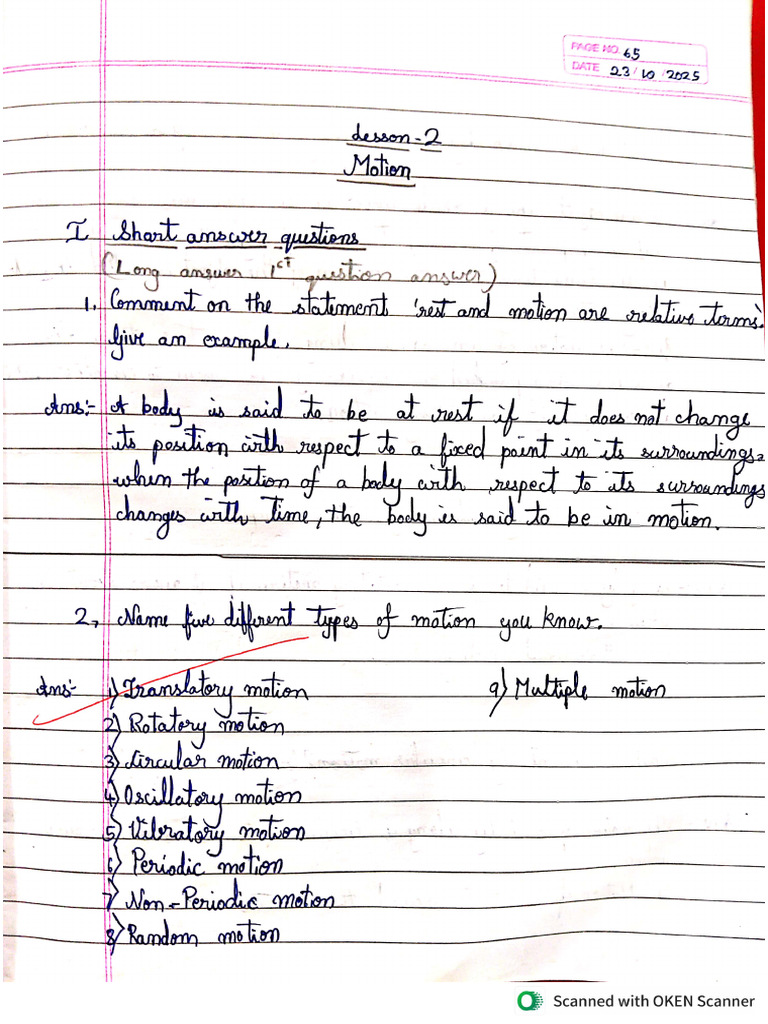 PAGE NO. 65
DATE 23/10/2025
Lesson-2
Motion
I Short answer questions
(Long answer 1st question answer)
1. Comment on the statement 'rest and motion are relative terms'.
Give an example.
Ans:- A body is said to be at rest if it does not change
its position with respect to a fixed point in its surroundings.
when the position of a body with respect to its surroundings
changes with time, the body is said to be in motion.
2, Name five different types of motion you know.
Ans:- 1) Translatory motion 9) Multiple motion
2) Rotatory motion
3) Circular motion
4) Oscillatory motion
5) Vibratory motion
6) Periodic motion
7) Non-Periodic motion
8) Random motion
Scanned with OKEN Scanner